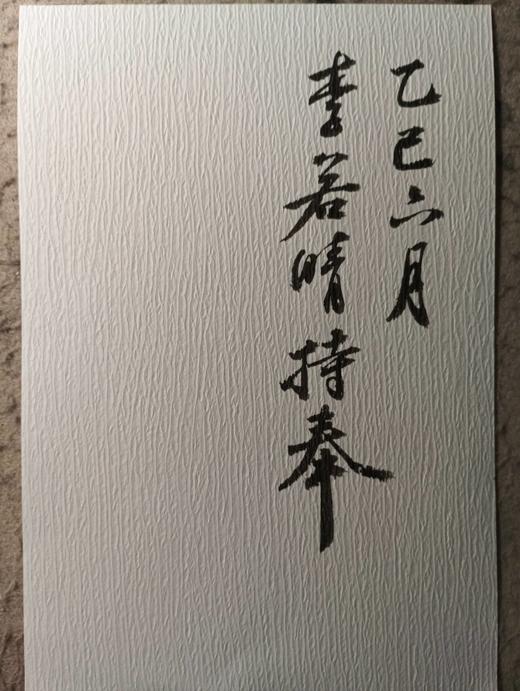 乙巳六月
李若晴持奉